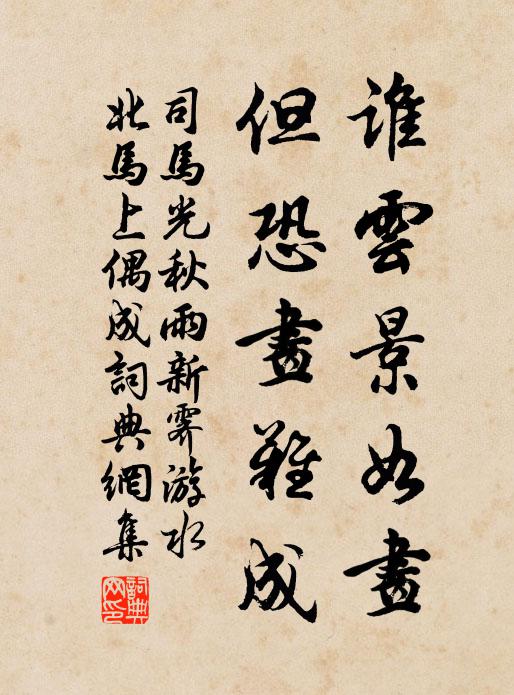 誰雲景如畫
但恐畫難成
司馬光秋雨新霽游水
北馬上偶成詞典網集
詞典
网印